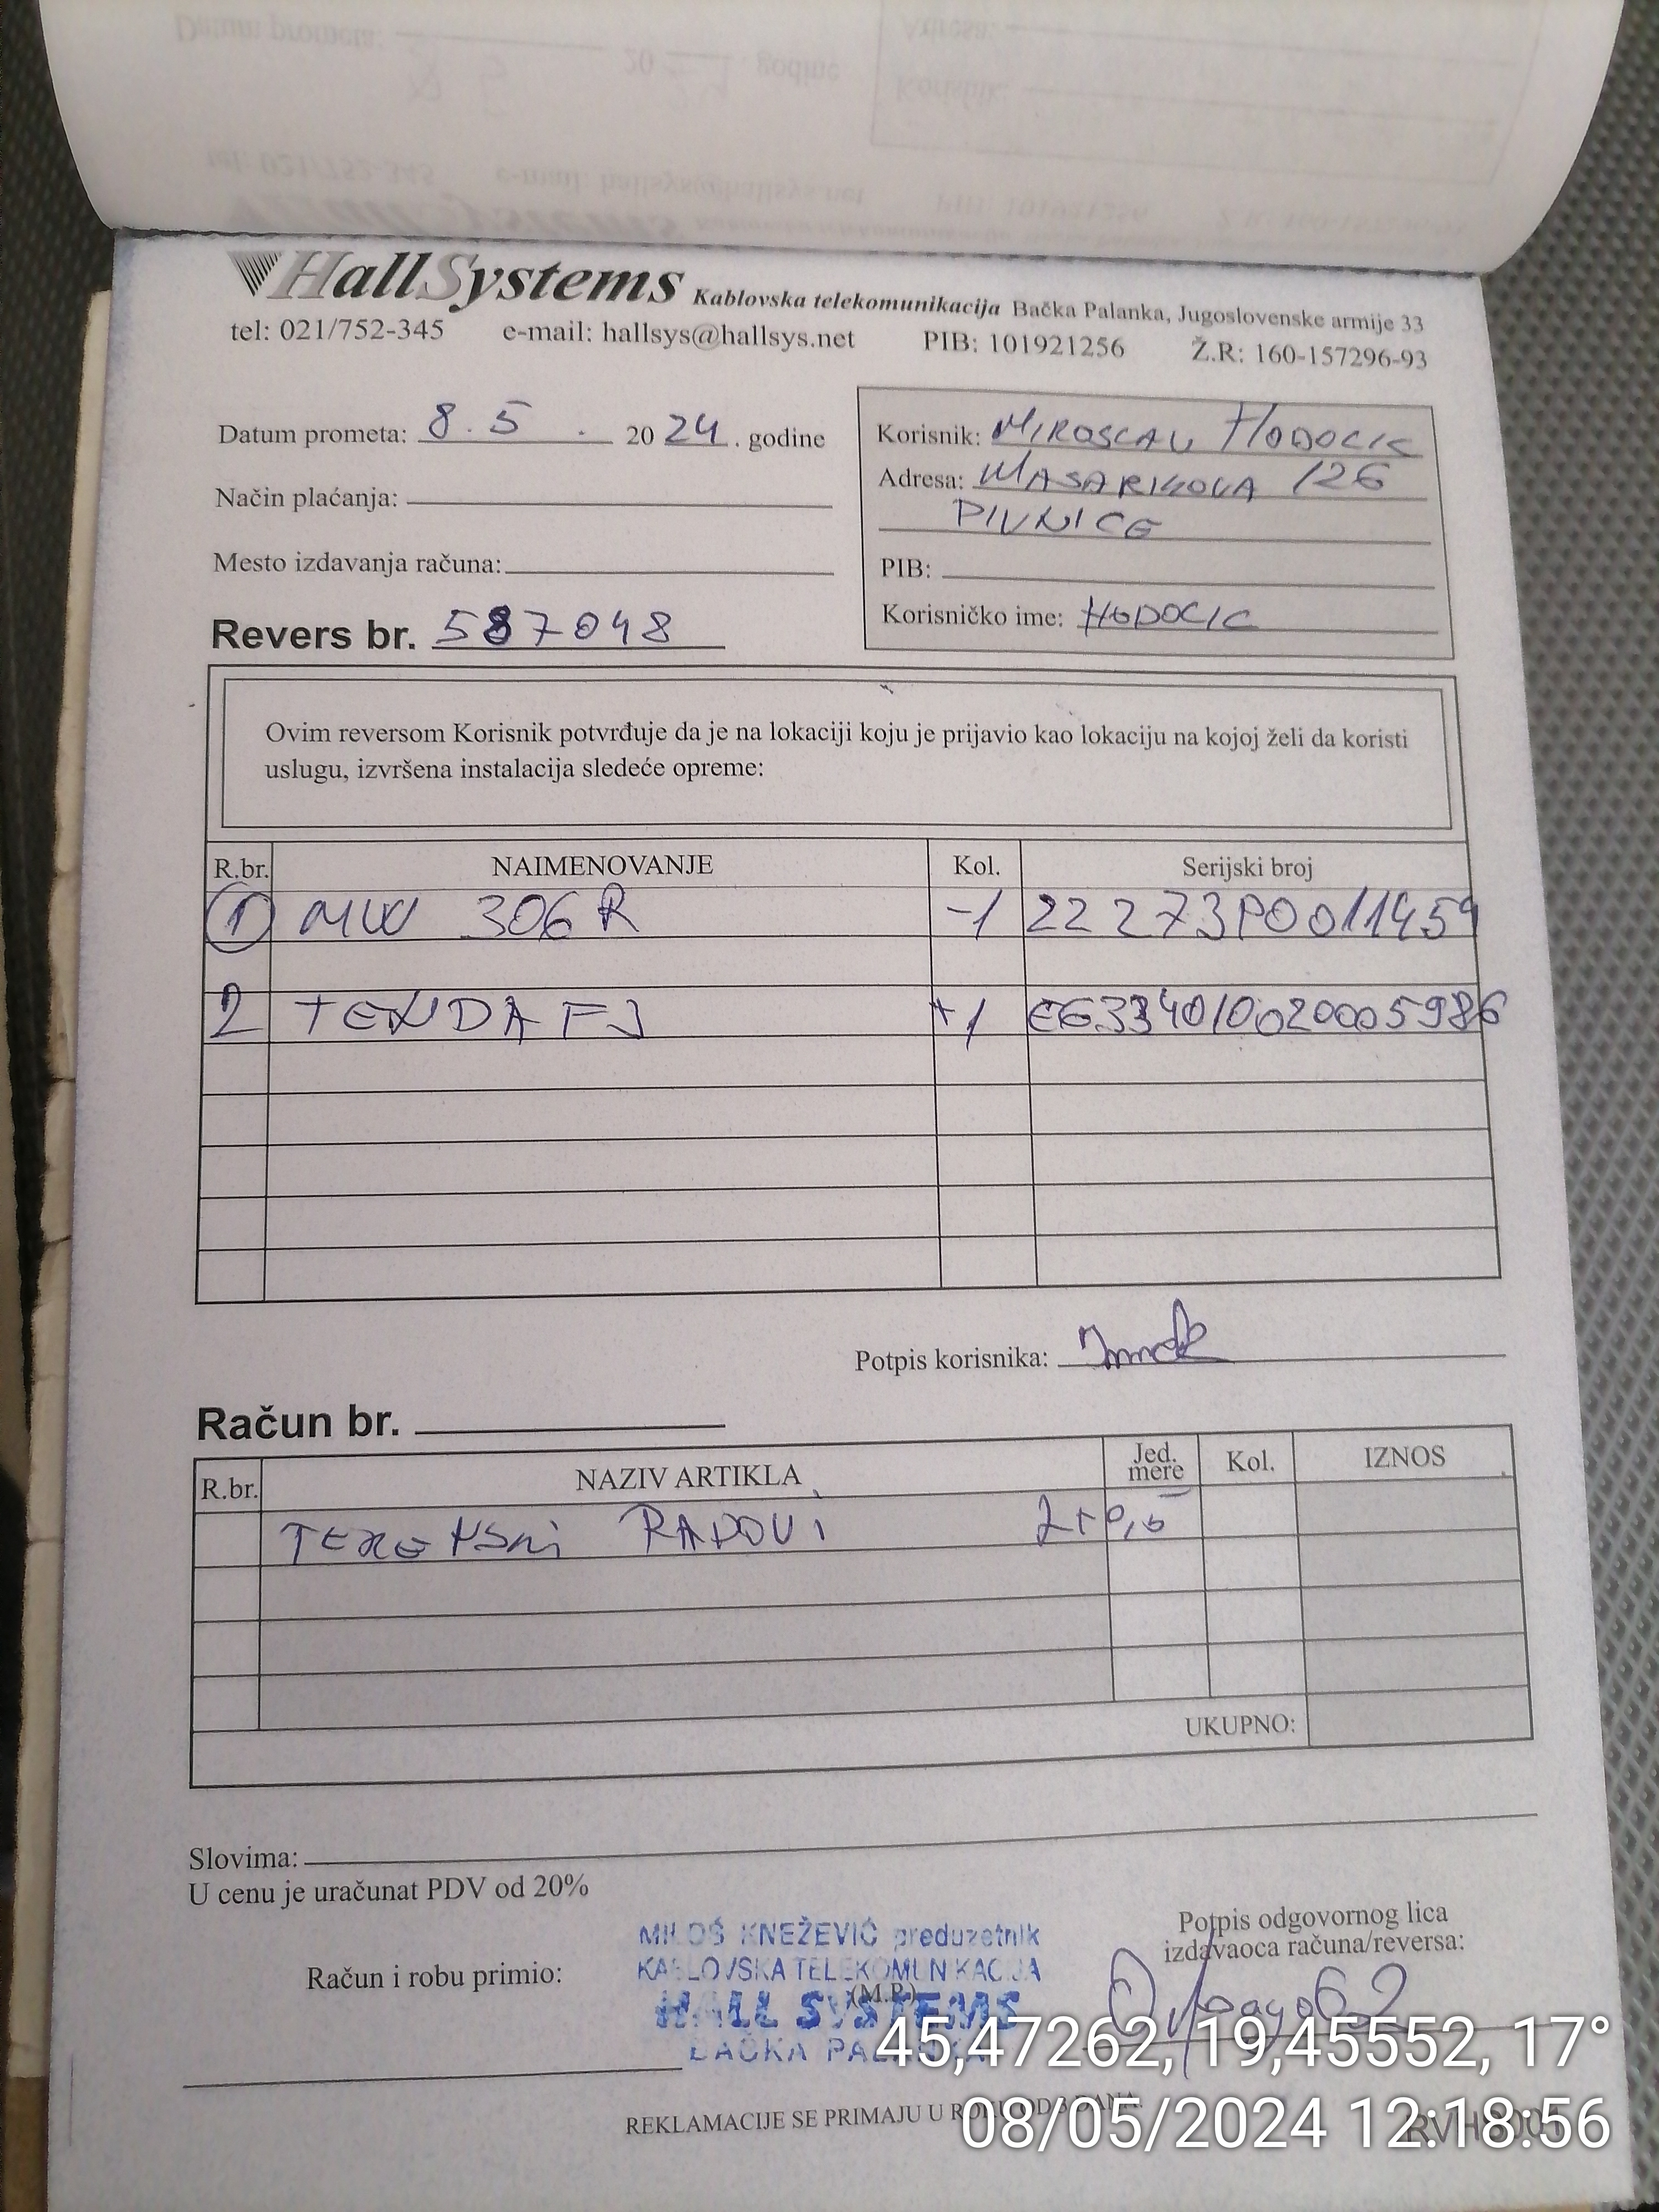 HallSystems Kablovska telekomunikacija Bačka Palanka, Jugoslovenske armije 33
tel: 021/752-345 e-mail: hallsys@hallsys.net PIB: 101921256 Ž.R: 160-157296-93
Datum prometa: 8. 5 . 2024. godine
Način plaćanja:
Mesto izdavanja računa:
Revers br. 587048
Korisnik: MIROSLAV HODOCIC
Adresa: MASARIKOVA 126
PIVNICE
PIB:
Korisničko ime: HODOCIC
Ovim reversom Korisnik potvrđuje da je na lokaciji koju je prijavio kao lokaciju na kojoj želi da koristi
uslugu, izvršena instalacija sledeće opreme:
R.br. NAIMENOVANJE Kol. Serijski broj
1 MW 306R -1 22273P0011459
2 TENDA F3 +1 E6334010020005986
Potpis korisnika:
Račun br.
R.br. NAZIV ARTIKLA Jed. mere Kol. IZNOS
TERENSKI RADOVI
UKUPNO:
Slovima:
U cenu je uračunat PDV od 20%
MILOŠ KNEŽEVIĆ preduzetnik
KABLOVSKA TELEKOMUNIKACIJA
HALL SYSTEMS
BAČKA PALANKA
Račun i robu primio:
(M.P.)
Potpis odgovornog lica
izdavaoca računa/reversa:
REKLAMACIJE SE PRIMAJU U ROKU OD 3 DANA
45,47262, 19,45552, 17°
08/05/2024 12:18:56